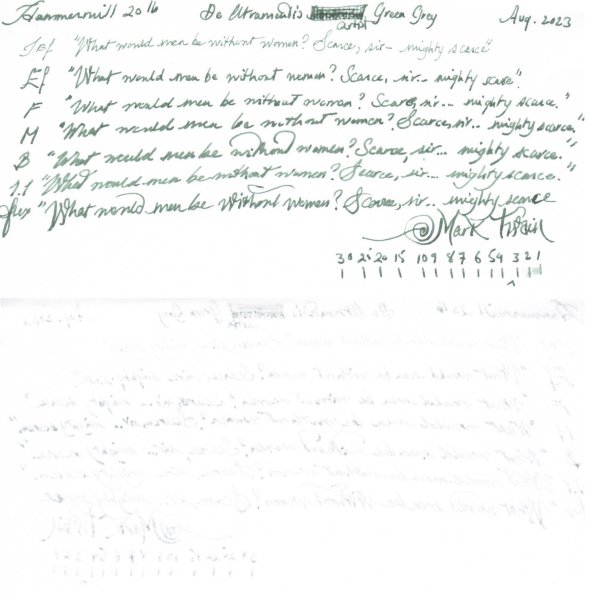 Hammermill 20 lb De Atramentis Green Grey Aug. 2023
artist
Jef "What would men be without women? Scarce, sir... mighty scarce"
Ef "What would men be without women? Scarce, sir... mighty scarce"
F "What would men be without women? Scarce, sir... mighty scarce."
M "What would men be without women? Scarce, sir... mighty scarce."
B "What would men be without women? Scarce, sir... mighty scarce."
1.1 "What would men be without women? Scarce, sir... mighty scarce."
flex "What would men be without women? Scarce, sir... mighty scarce
@Mark Twain
30 25 20 15 10 9 8 7 6 5 4 3 2 1